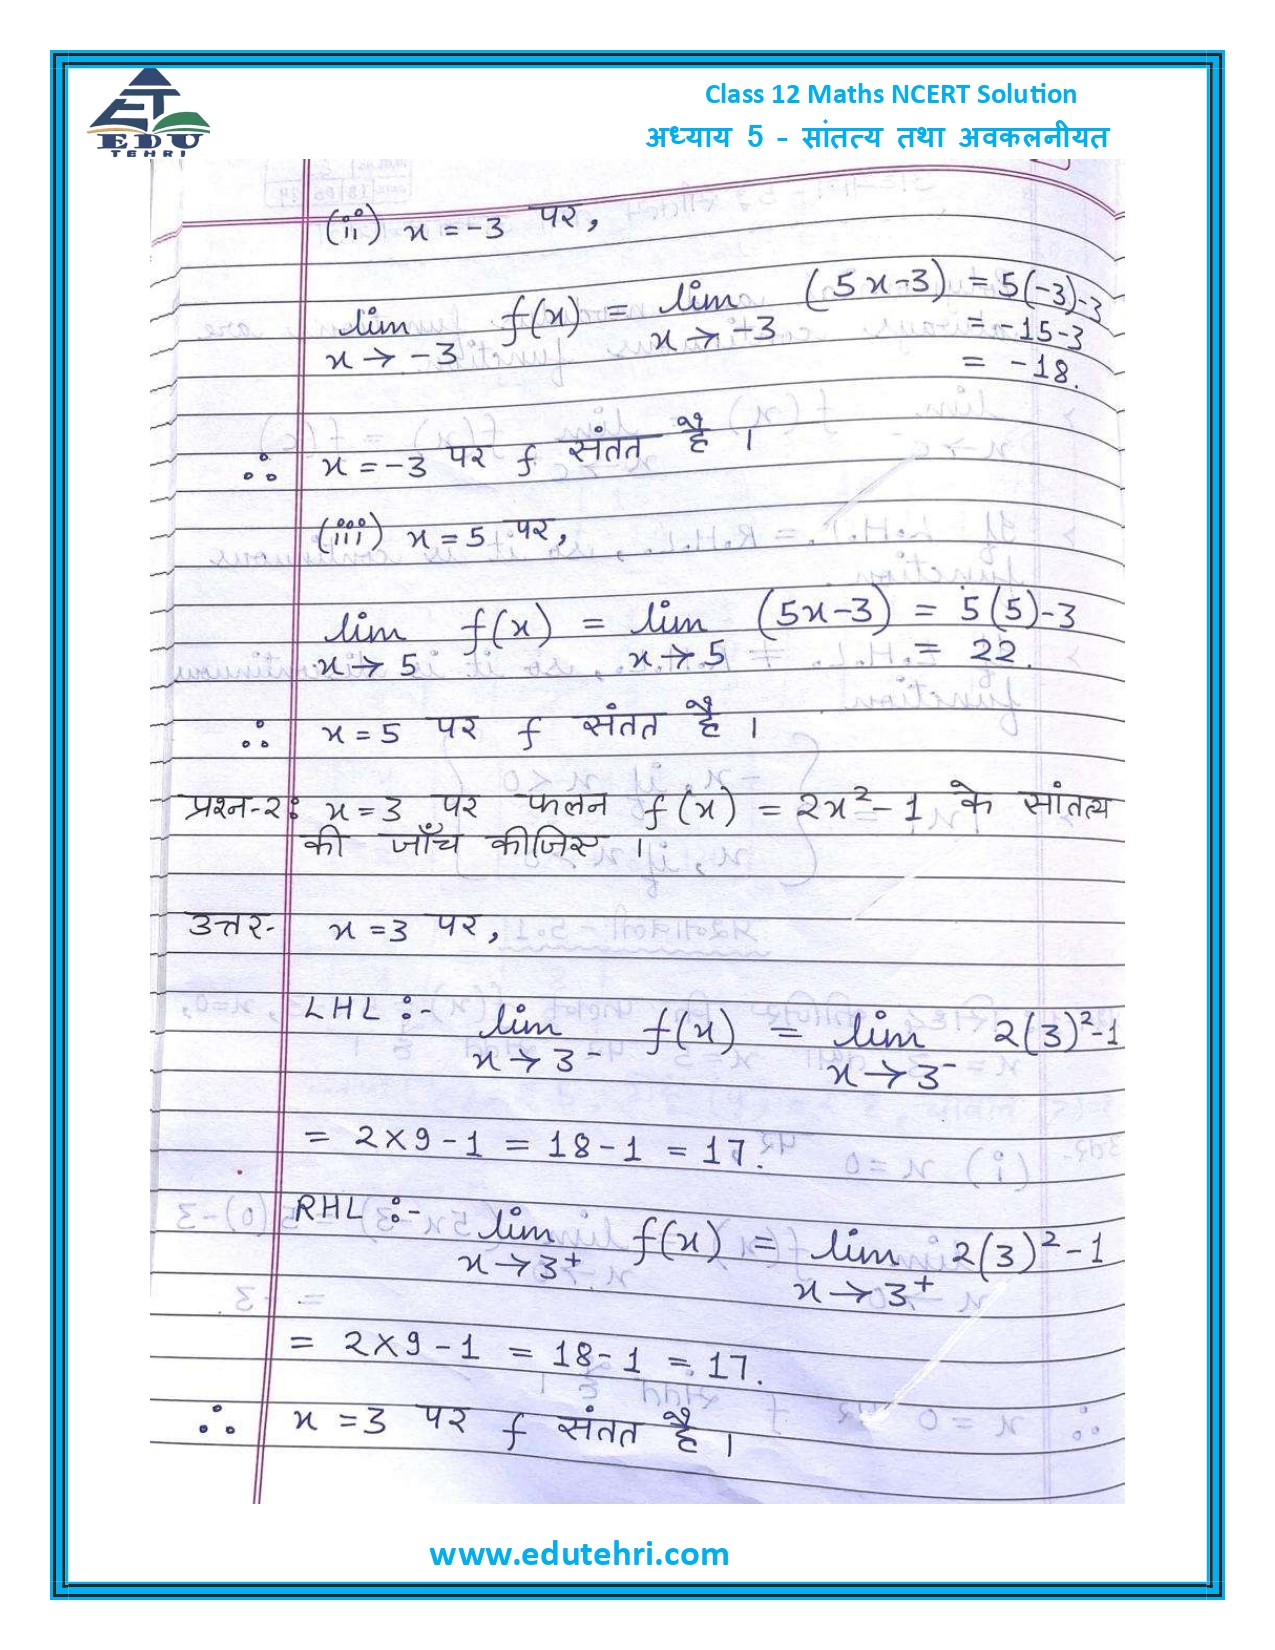 EDU
TEHRI
Class 12 Maths NCERT Solution
अध्याय 5 - सांतत्य तथा अवकलनीयत
(ii) x = -3 पर,
lim f(x) = lim (5x-3) = 5(-3)-3
x → -3 x → -3 = -15-3
= -18.
∴ x = -3 पर f संतत है ।
(iii) x = 5 पर,
lim f(x) = lim (5x-3) = 5(5)-3
x → 5 x → 5 = 22.
∴ x = 5 पर f संतत है ।
प्रश्न-२: x = 3 पर फलन f(x) = 2x²-1 के सांतत्य
की जाँच कीजिए ।
उत्तर- x = 3 पर,
LHL :- lim f(x) = lim 2(3)²-1
x → 3⁻ x → 3⁻
= 2×9-1 = 18-1 = 17.
RHL :- lim f(x) = lim 2(3)²-1
x → 3⁺ x → 3⁺
= 2×9-1 = 18-1 = 17.
∴ x = 3 पर f संतत है ।
www.edutehri.com